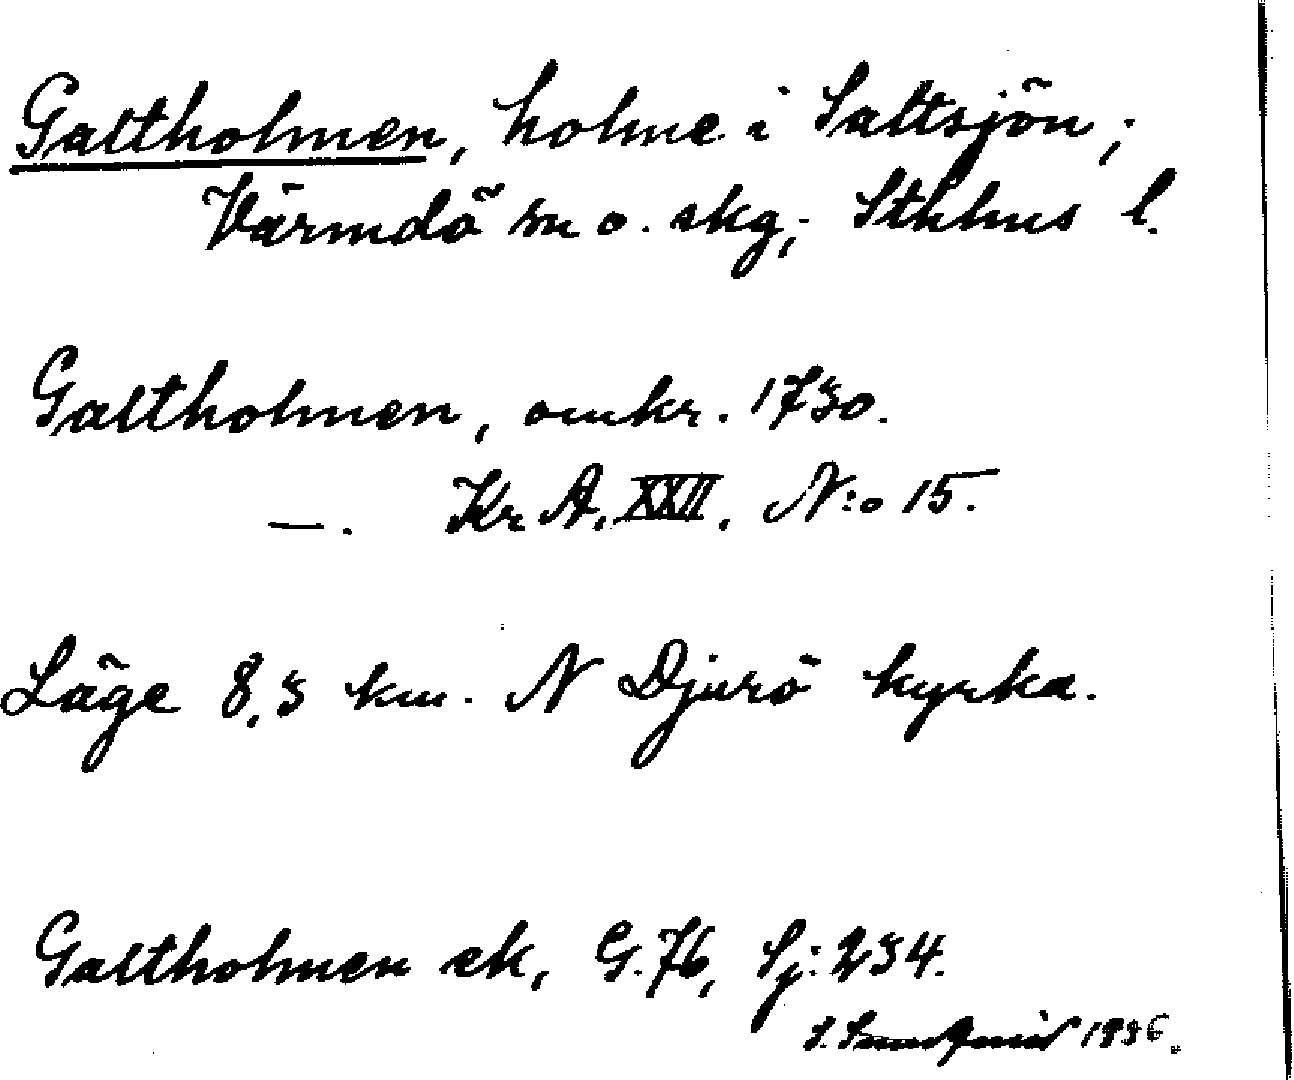 Galtholmen, holme i Saltsjön;
Värmdö sn o. skg; Sthlms l.
Galtholmen, omkr. 1730.
—. Kr A. XXII. N:o 15.
Läge 8,3 km. N Djurö kyrka.
Galtholmen ek, G.76, Sj:234.
S. 1936.